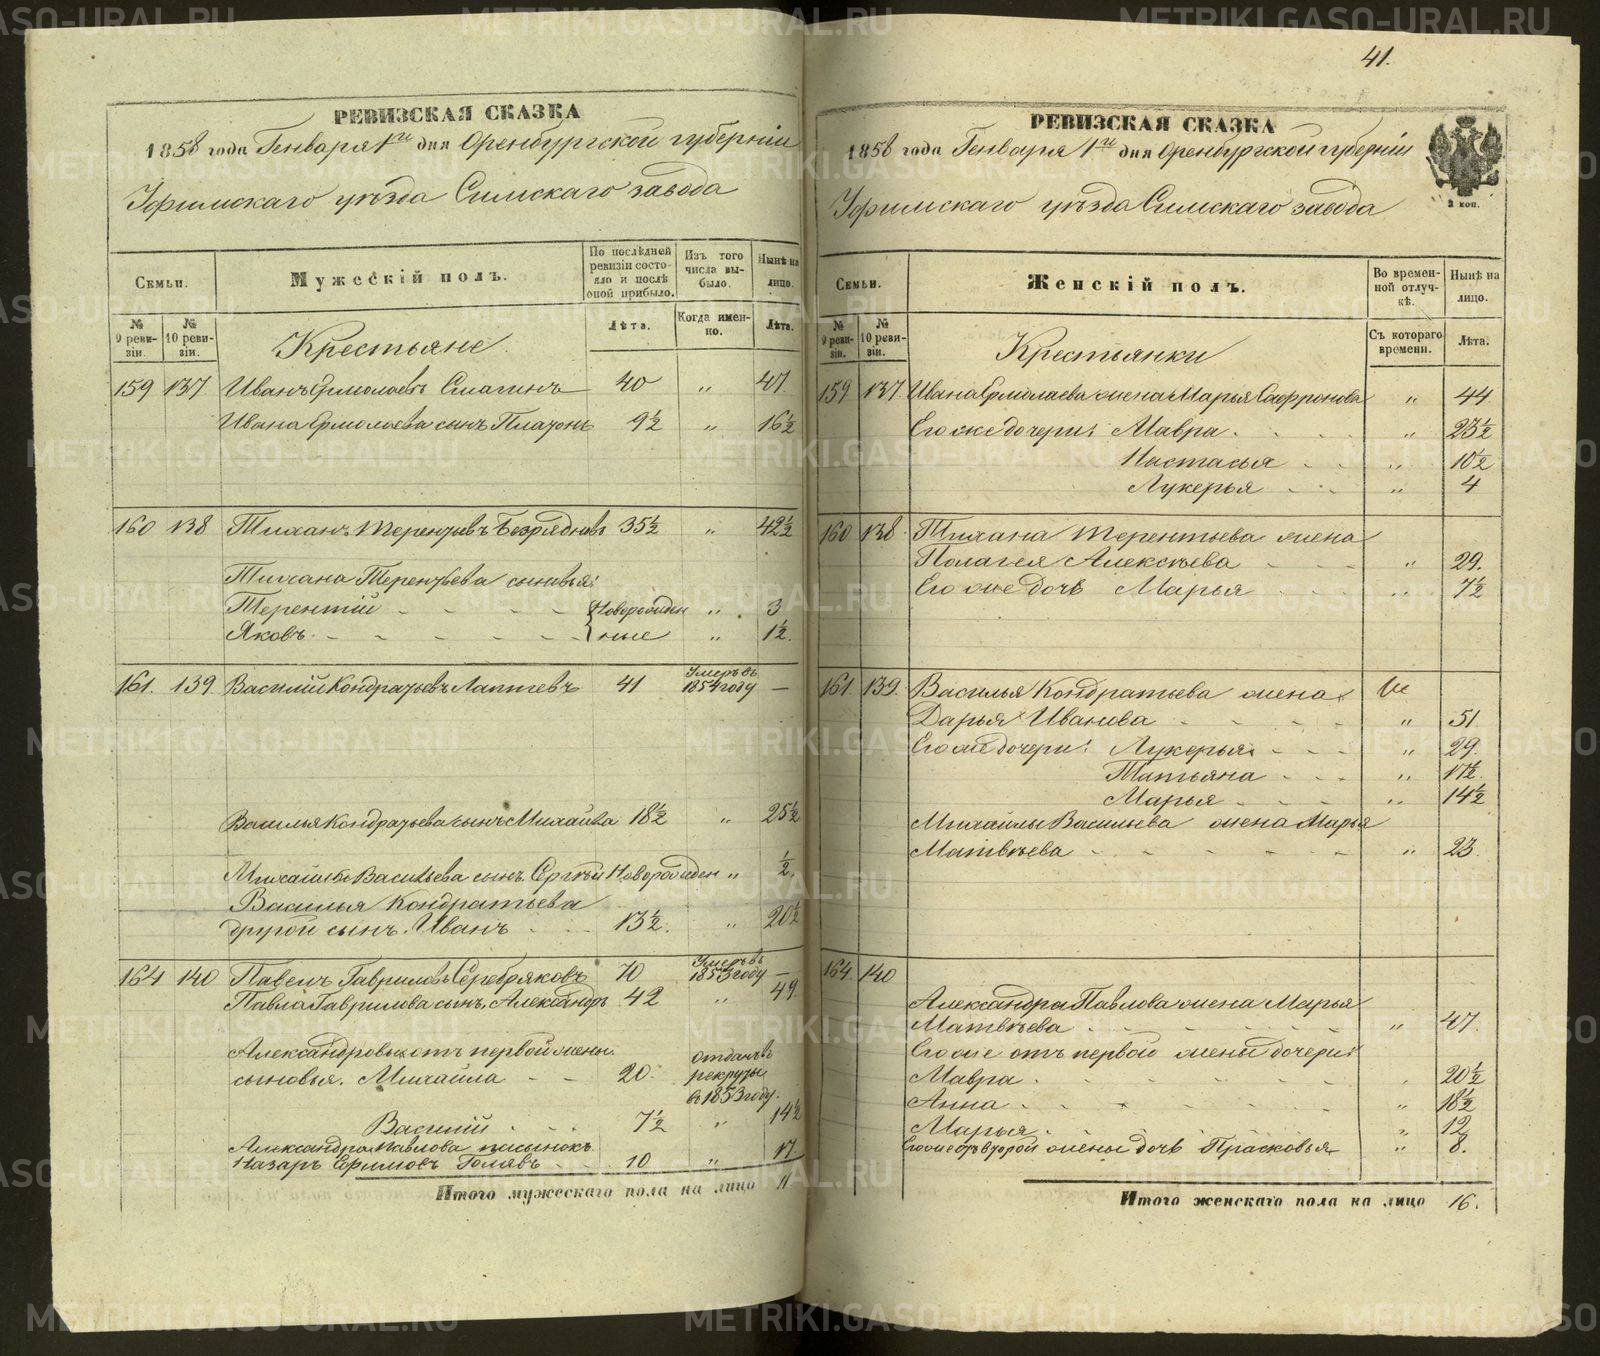 41.
РЕВИЗСКАЯ СКАЗКА
1858 года Генваря 1го дня Оренбургской губерніи
Уфимскаго уѣзда Симскаго завода
Семьи.
Мужескій полъ.
По послѣдней ревизіи состояло и послѣ оной прибыло.
Изъ того числа выбыло.
Нынѣ на лицо.
№ 9 ревизіи.
№ 10 ревизіи.
Крестьяне
Лѣта.
Когда именно.
Лѣта.
159 137 Иванъ Ермолаевъ Смагинъ 40 " 47
Ивана Ермолаева сынъ Платонъ 9½ " 16½
160 138 Тиханъ Терентьевъ Безрядновъ 35½ " 42½
Тихана Терентьева сыновья:
Терентій - - - Новорожден " 3
Яковъ - - - - - ные " 1½
161. 139. Василій Кондратьевъ Лаптевъ 41 Умеръ въ 1854 году —
Василья Кондратьева сынъ Михайла 18½ " 25½
Михайлы Васильева сынъ Сергѣй Новорожден " ½
Василья Кондратьева
другой сынъ Иванъ - - - 13½. " 20½
164 140 Павелъ Гавриловъ Серебряковъ 70 Умеръ въ 1853 году —
Павла Гаврилова сынъ Александръ 42 " 49
Александровы отъ первой жены
сыновья. Михайла - - 20 отданъ въ рекруты въ 1853 году.
Василій - - - 7½ " 14½
Александра Павлова пасынокъ
Назаръ Ефимовъ Голявъ - - 10 " 17
Итого мужескаго пола на лицо 11.
РЕВИЗСКАЯ СКАЗКА
1858 года Генваря 1го дня Оренбургской губерніи
2 коп.
Уфимскаго уѣзда Симскаго завода
Семьи.
Женскій полъ.
Во временной отлучкѣ.
Нынѣ на лицо.
№ 9 ревизіи.
№ 10 ревизіи.
Крестьянки
Съ котораго времени.
Лѣта.
159 137 Ивана Ермолаева жена Марья Сафронова " 44
Его же дочери: Мавра - - - " 23½
Настасья - - " 10½
Лукерья - - " 4
160 138. Тихана Терентьева жена
Палагея Алексѣева - - - " 29.
Его же дочь Марья - - - " 7½
161. 139. Василья Кондратьева жена
Дарья Иванова - - - - " 51
Его же дочери: Лукерья - - - " 29.
Татьяна - - - " 17½
Марья - - - - " 14½
Михайлы Васильева жена Марья
Матвѣева - - - - - - " 23.
164. 140
Александра Павлова жена Марья
Матвѣева - - - - - - " 47.
Его же отъ первой жены дочери:
Мавра - - - - - - " 20½
Анна - - - - - - " 18½
Марья - - - - - - " 12
Его же отъ второй жены дочь Прасковья " 8.
Итого женскаго пола на лицо 16.
METRIKI.GASO-URAL.RU